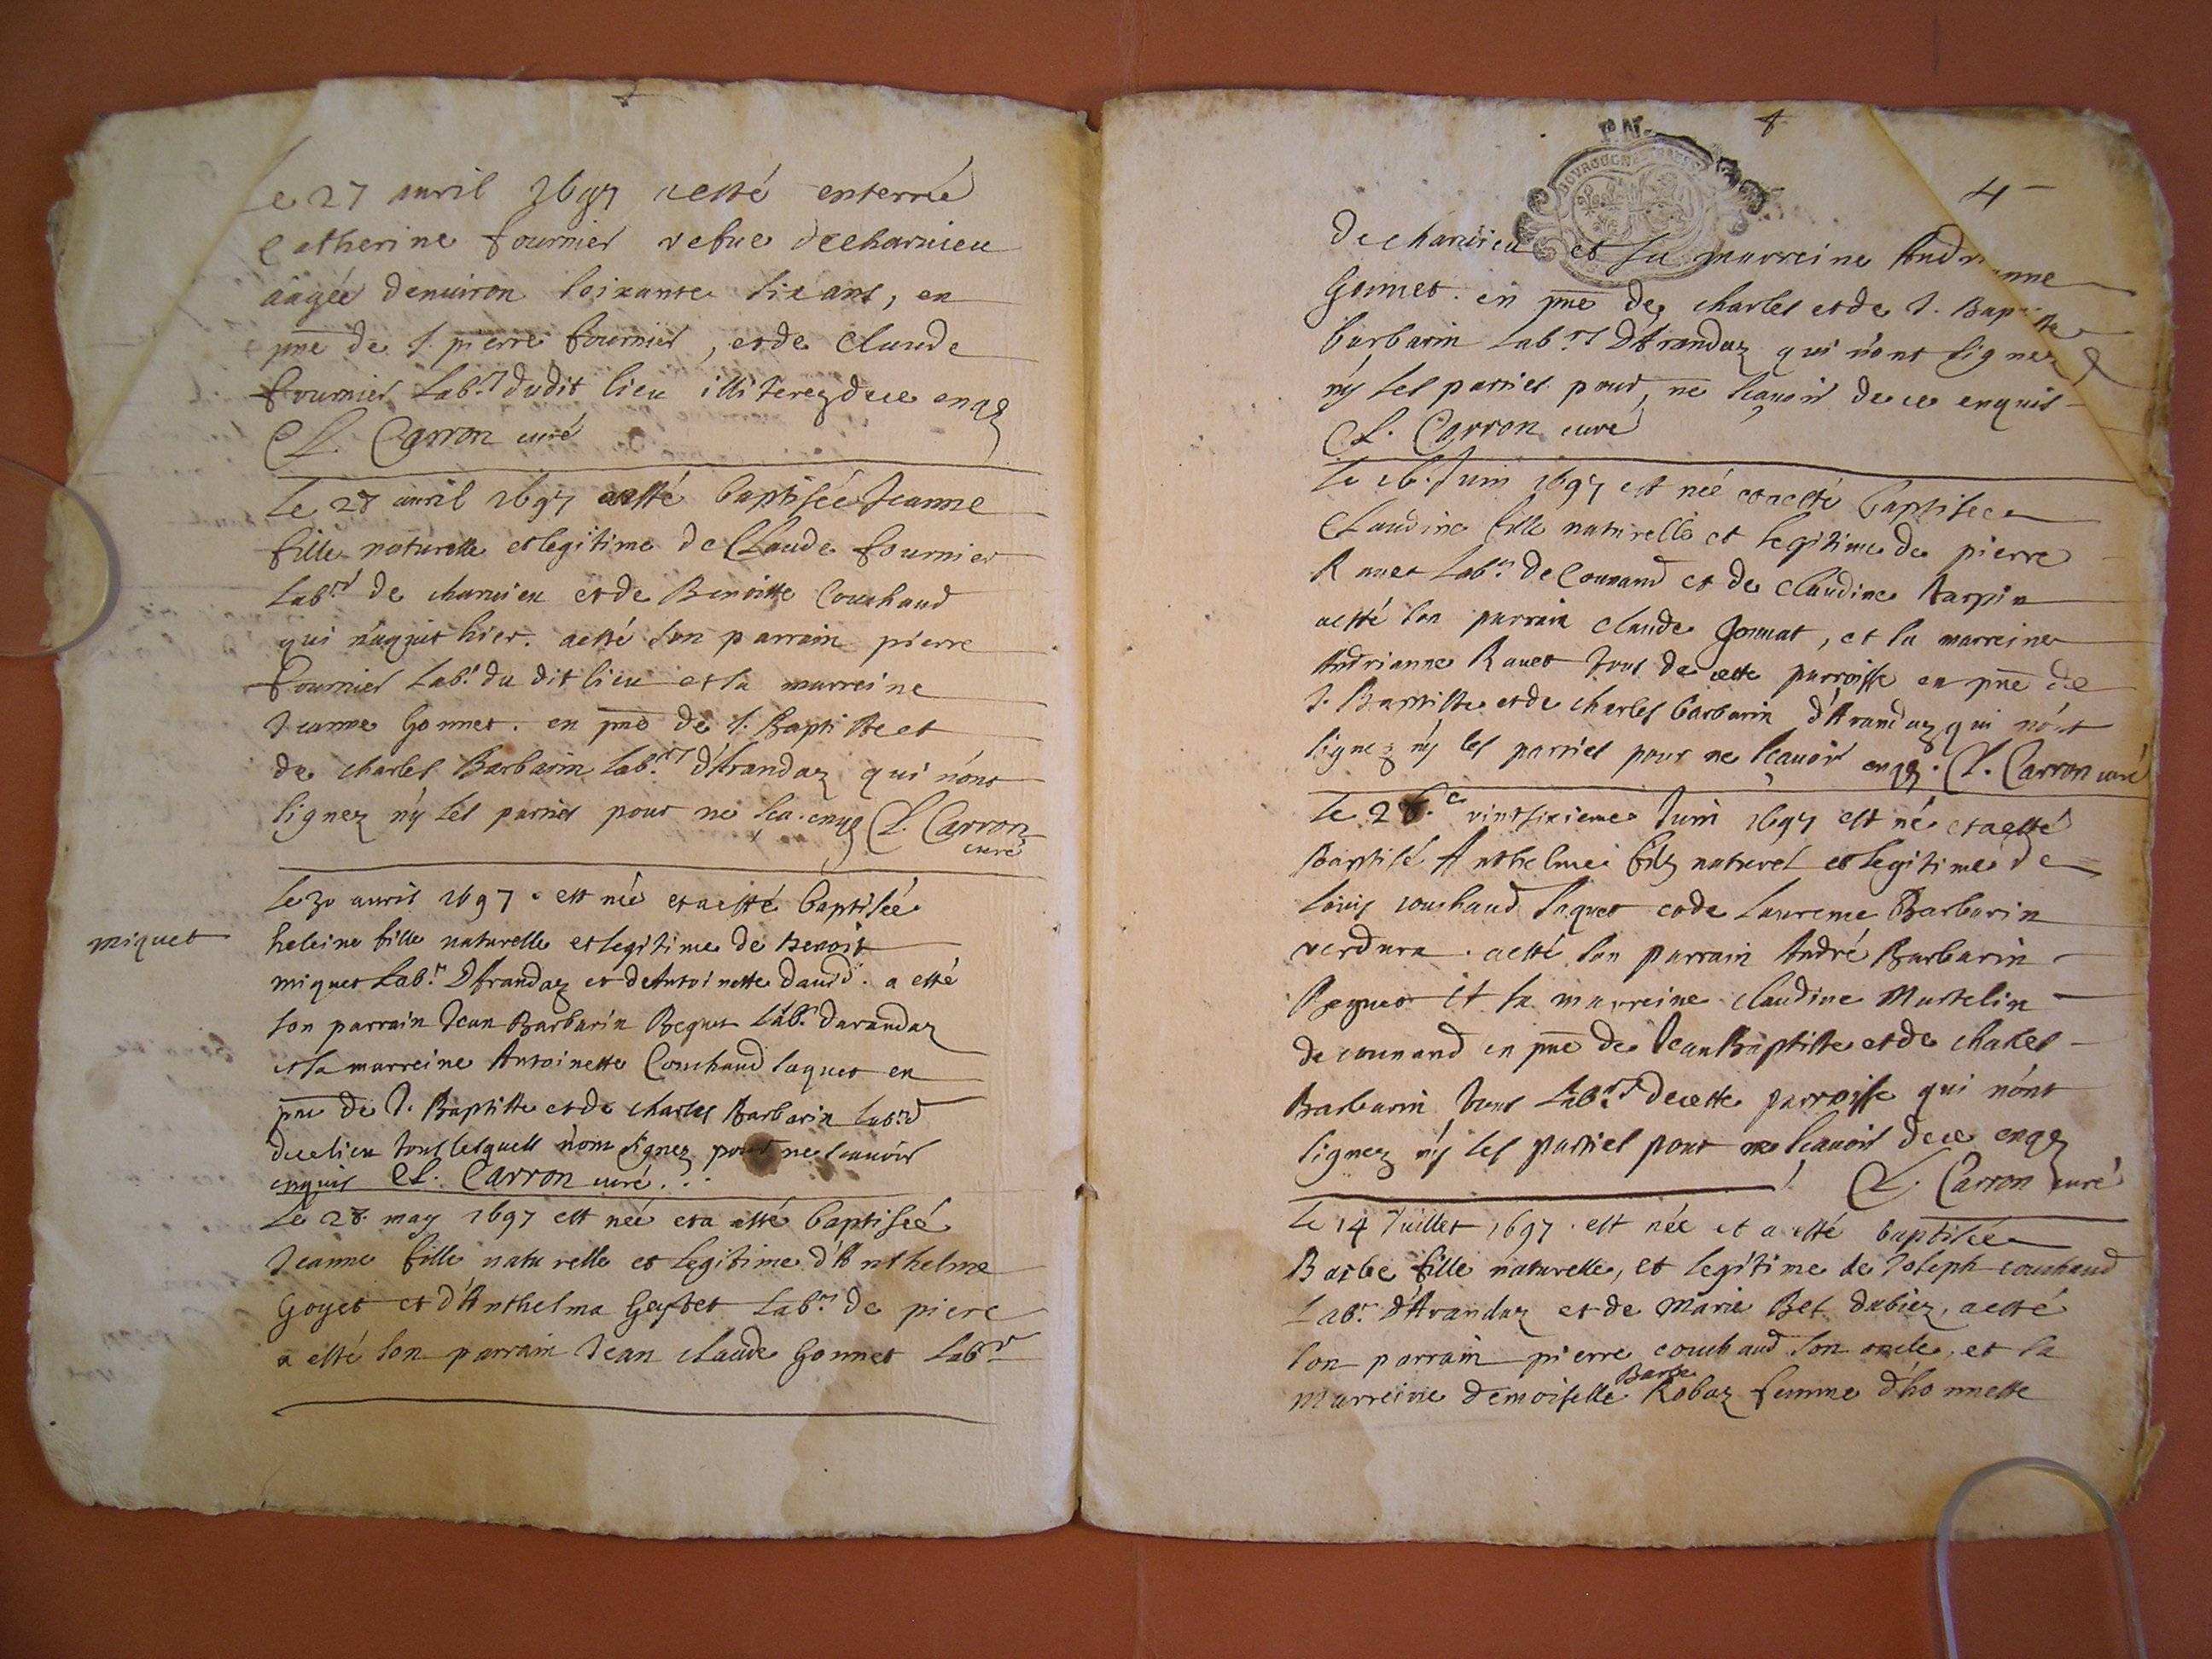 Le 27 auril 1697 aesté enterrée
Catherine fournier vefue decharuieu
aagée denuiron soixante six ans, en
pnce de J. pierre fournier, et de Claude
fournier Labrs dudit lieu illiterez dece enqs
Cl. Carron curé
Le 28 auril 1697 aesté baptisée Jeanne
fille naturelle et legitime de Claude fournier
labr de charuieu et de Benoitte Couchaud
qui naquit hier. aesté son parrain pierre
fournier Labr du dit lieu et sa marreine
Jeanne Gonnet. en pnce de J. Baptiste et
de charles Barbarin labrs d'Arandaz qui n'ont
signez n'y les parties pour ne sca. enqs Cl. Carron
curé
le 30 auril 1697. est née et aesté baptisée
miquet
heleine fille naturelle et legitime de Benoit
miquet Labr D'Arandaz et de Antoinette dauid. a esté
son parrain Jean Barbarin Beguet Labr darandaz
et sa marreine Antoinette Couchaud Jaquet en
pnce de J. Baptiste et de charles Barbarin Labrs
decelieu tous lesquels n'ont signez pour ne scauoir
enquis Cl. Carron curé.
Le 28. may 1697 est née et a esté baptisée
Jeanne fille naturelle et legitime d'Anthelme
Goyet et d'Anthelma Labr de
a esté son parrain Jean claude Gonnet Labr
4
de charuieu et sa marreine Andrianne
Gonnet. en pnce de charles et de J. Baptiste
barbarin Labrs D'Arandaz qui n'ont signez
n'y les parties pour, ne scauoir dece enquis
Cl. Carron curé
Le 16. Juin 1697 est née et aesté baptisée
Claudine fille naturelle et legitime de pierre
Rauet Labr de Counand et de claudine tarpin
aesté son parrain claude Gonnat, et sa marreine
Andrianne Rauet tous de cette parroisse en pnce de
J. Baptiste et de charles barbarin d'Arandaz qui n'ont
signez n'y les parties pour ne scauoir enqs. Cl. Carron curé
Le 26.e vintsixieme Juin 1697 est né et aesté
baptisé Anthelme filz naturel et legitime de
louis couchaud Jaquet et de Laurence Barbarin
verdura. aesté son parrain André Barbarin
Beguet et sa marreine claudine Martelin
de counand en pnce de Jean Baptiste et de charles
Barbarin tous Labrs decette parroisse qui n'ont
signez n'y les parties pour ne scauoir dece enqs
Cl. Carron curé
Le 14 Juillet 1697. est née et a esté baptisée
Barbe fille naturelle, et legitime de Joseph couchaud
Labr D'Arandaz et de Marie Bel dubiez, aesté
son parrain pierre couchaud son oncle, et sa
Barbe
marreine demoiselle Robaz femme d'honneste